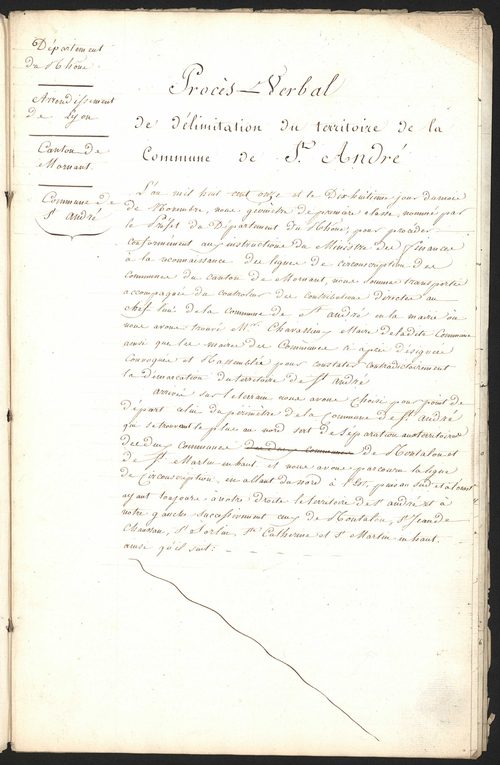 Département
du Rhône
Arrondissement
de Lyon
Canton de
Mornant
Commune de
St André
Procès-Verbal
de délimitation du territoire de la
Commune de St André
L'an mil huit cent onze et le Dixhuitieme jour du mois
de Novembre, nous géomètre de première classe, nommé par
le Préfet du Département du Rhône, pour procéder
conformément aux instructions du Ministre des finances
à la reconnaissance des lignes de circonscription des
Communes du canton de Mornant, nous sommes transporté
accompagné du controleur des contributions directes au
chef lieu de la commune de St andré en la mairie où
nous avons trouvé Mr. Chavassieu, Maire de ladite Commune
ainsi que les maires des Communes ci après désignées
Convoqués et Rassemblés pour constater contradictoirement
la démarcation du territoire de St André
arrivés sur le terrain nous avons choisi pour point de
départ celui du périmètre de la Commune de St andré
qui se trouvant le plus au nord sert de séparation aux territoires
des deux communes des deux communes de Montalon et
de St Martin en haut et nous avons parcouru la ligne
de Circonscription, en allant du nord à l'Est, puis au sud et à l'ouest
ayant toujours à notre droite le territoire de St andré et à
notre gauche successivement ceux de Montalon, St Jean de
Chaussan, St Sorlin, Ste Catherine et St Martin en haut.
ainsi qu'il suit: